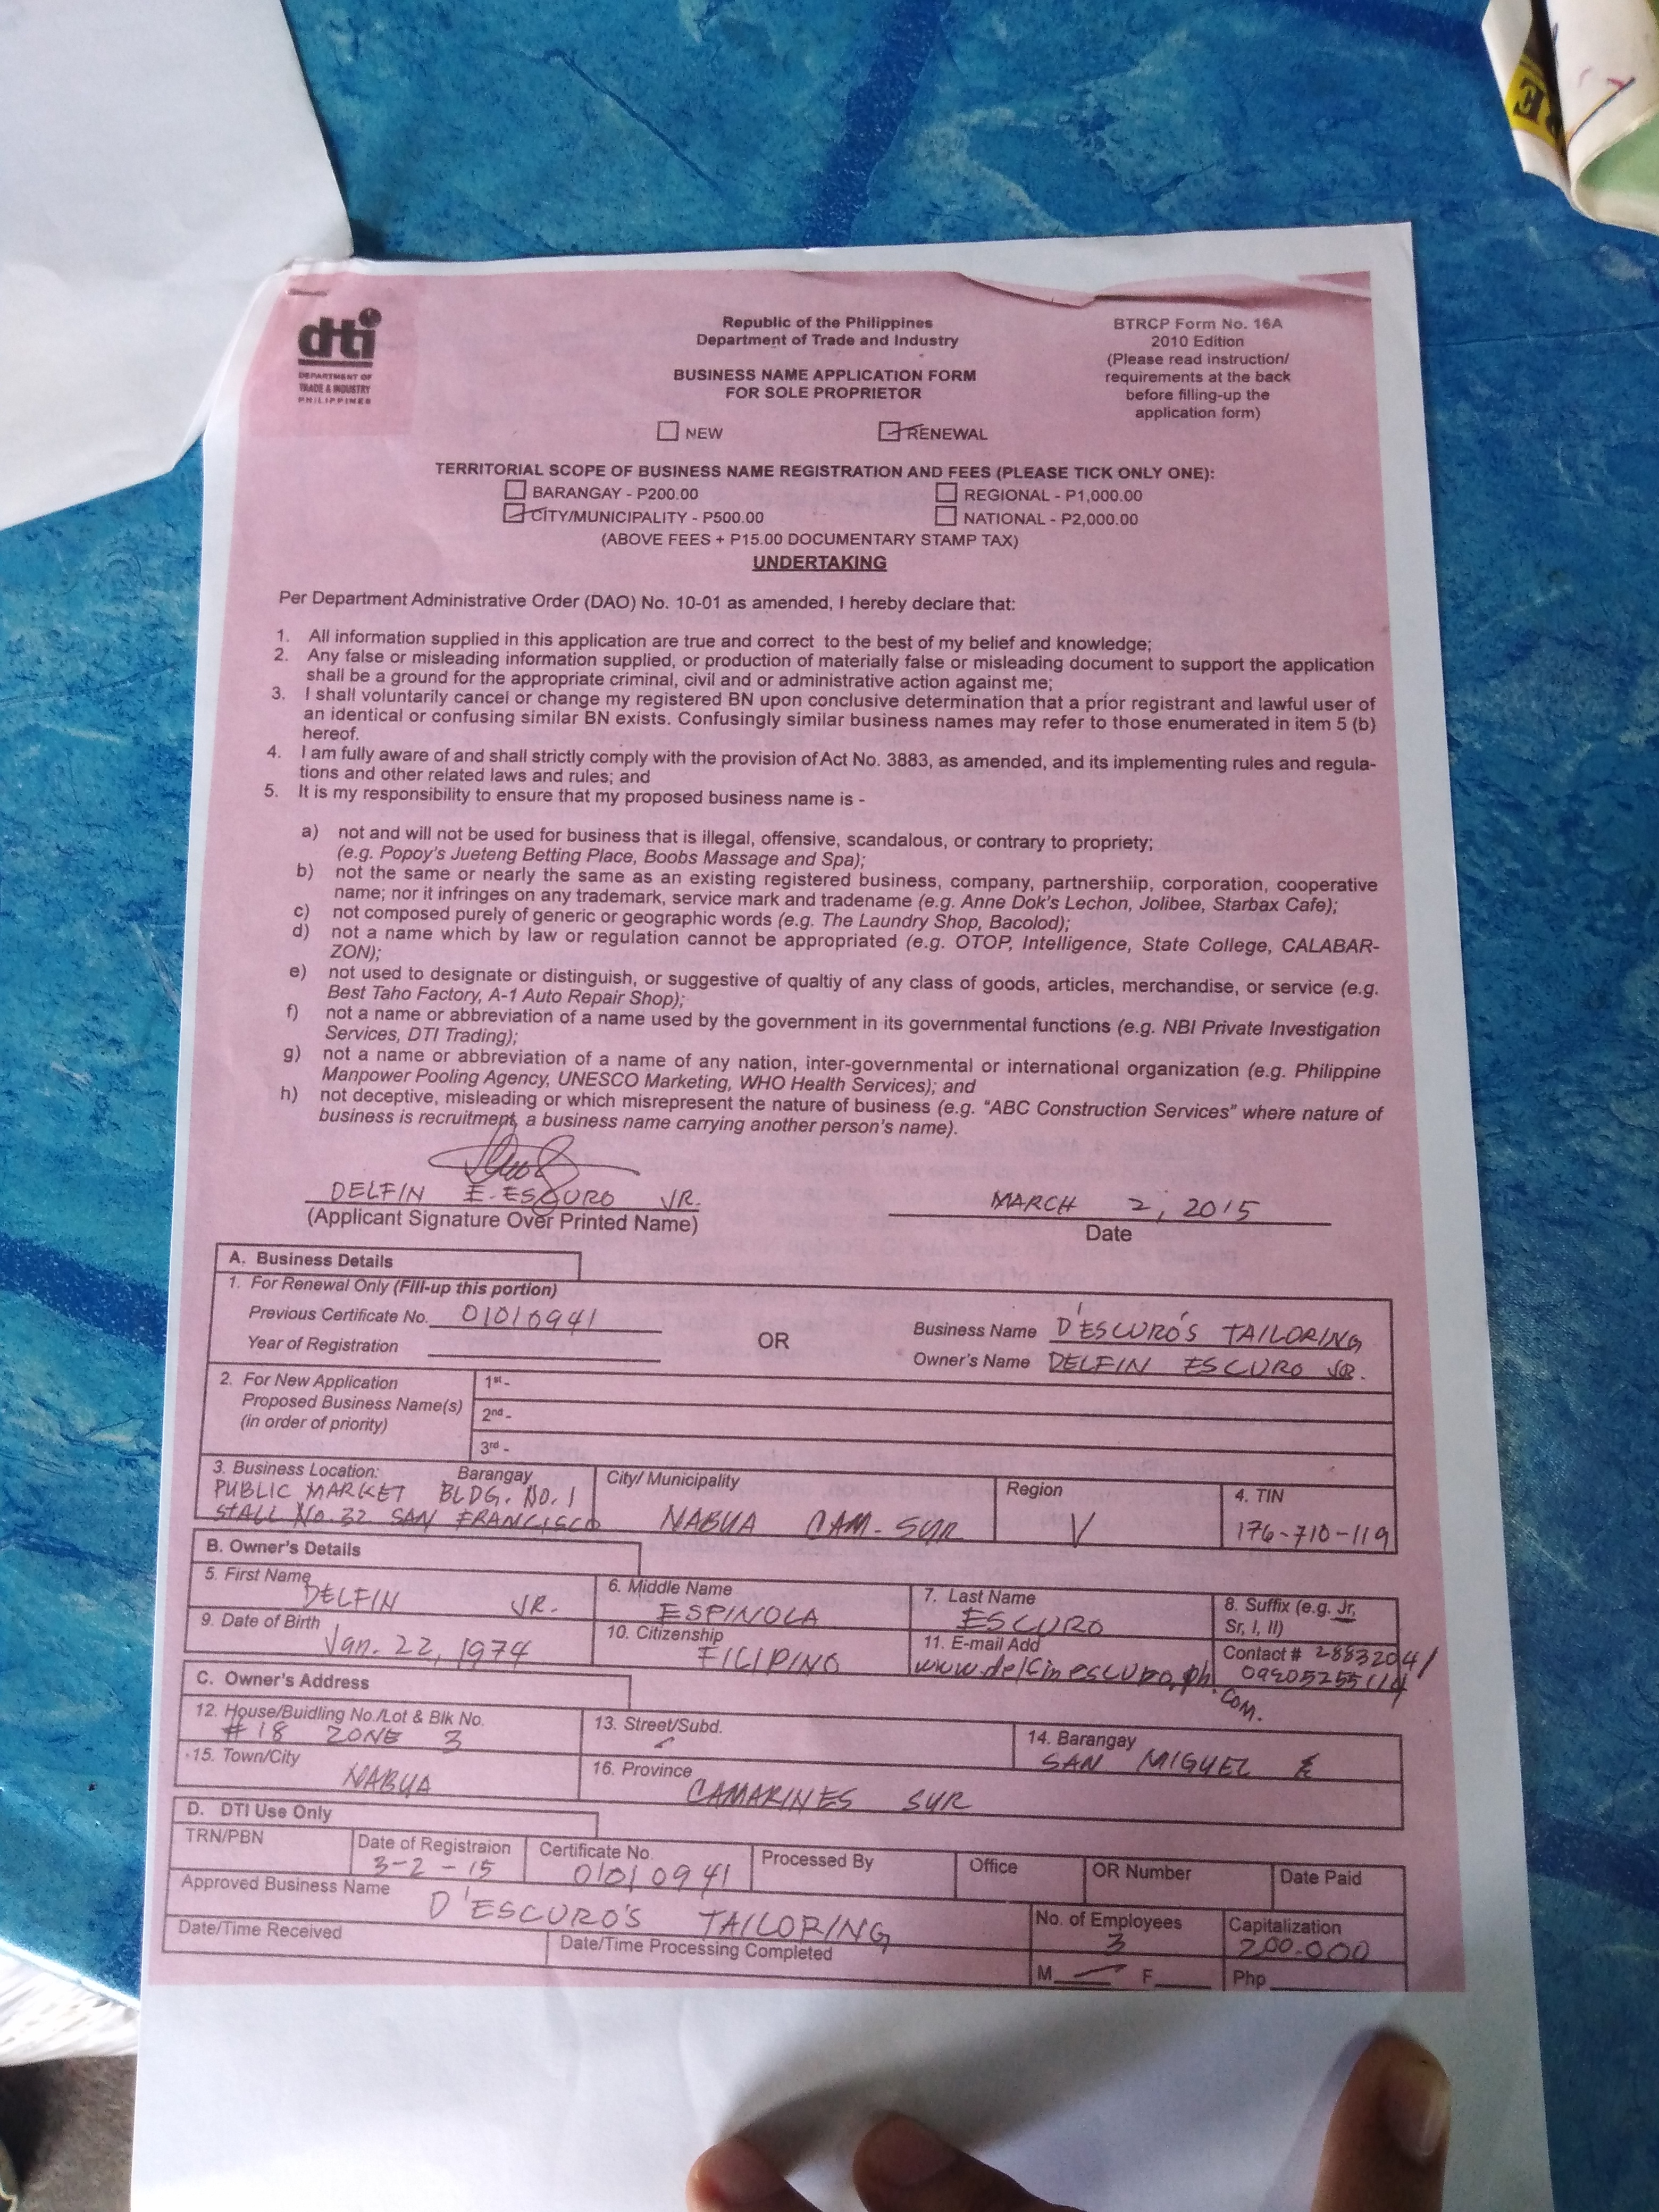 dti
DEPARTMENT OF
TRADE & INDUSTRY
PHILIPPINES
Republic of the Philippines
Department of Trade and Industry
BUSINESS NAME APPLICATION FORM
FOR SOLE PROPRIETOR
BTRCP Form No. 16A
2010 Edition
(Please read instruction/
requirements at the back
before filling-up the
application form)
NEW RENEWAL
TERRITORIAL SCOPE OF BUSINESS NAME REGISTRATION AND FEES (PLEASE TICK ONLY ONE):
BARANGAY - P200.00 REGIONAL - P1,000.00
CITY/MUNICIPALITY - P500.00 NATIONAL - P2,000.00
(ABOVE FEES + P15.00 DOCUMENTARY STAMP TAX)
UNDERTAKING
Per Department Administrative Order (DAO) No. 10-01 as amended, I hereby declare that:
1. All information supplied in this application are true and correct to the best of my belief and knowledge;
2. Any false or misleading information supplied, or production of materially false or misleading document to support the application
shall be a ground for the appropriate criminal, civil and or administrative action against me;
3. I shall voluntarily cancel or change my registered BN upon conclusive determination that a prior registrant and lawful user of
an identical or confusing similar BN exists. Confusingly similar business names may refer to those enumerated in item 5 (b)
hereof.
4. I am fully aware of and shall strictly comply with the provision of Act No. 3883, as amended, and its implementing rules and regula-
tions and other related laws and rules; and
5. It is my responsibility to ensure that my proposed business name is -
a) not and will not be used for business that is illegal, offensive, scandalous, or contrary to propriety;
(e.g. Popoy's Jueteng Betting Place, Boobs Massage and Spa);
b) not the same or nearly the same as an existing registered business, company, partnershiip, corporation, cooperative
name; nor it infringes on any trademark, service mark and tradename (e.g. Anne Dok's Lechon, Jolibee, Starbax Cafe);
c) not composed purely of generic or geographic words (e.g. The Laundry Shop, Bacolod);
d) not a name which by law or regulation cannot be appropriated (e.g. OTOP, Intelligence, State College, CALABAR-
ZON);
e) not used to designate or distinguish, or suggestive of qualtiy of any class of goods, articles, merchandise, or service (e.g.
Best Taho Factory, A-1 Auto Repair Shop);
f) not a name or abbreviation of a name used by the government in its governmental functions (e.g. NBI Private Investigation
Services, DTI Trading);
g) not a name or abbreviation of a name of any nation, inter-governmental or international organization (e.g. Philippine
Manpower Pooling Agency, UNESCO Marketing, WHO Health Services); and
h) not deceptive, misleading or which misrepresent the nature of business (e.g. “ABC Construction Services” where nature of
business is recruitment, a business name carrying another person's name).
DELFIN E. ESCURO JR. MARCH 2, 2015
(Applicant Signature Over Printed Name) Date
A. Business Details
1. For Renewal Only (Fill-up this portion)
Previous Certificate No. 01010941 OR Business Name D'ESCURO'S TAILORING
Year of Registration Owner's Name DELFIN ESCURO JR.
2. For New Application 1st -
Proposed Business Name(s) 2nd -
(in order of priority) 3rd -
3. Business Location: Barangay City/ Municipality Region 4. TIN
PUBLIC MARKET BLDG. NO. 1
STALL No. 32 SAN FRANCISCO NABUA CAM. SUR V 176-710-119
B. Owner's Details
5. First Name 6. Middle Name 7. Last Name 8. Suffix (e.g. Jr,
DELFIN JR. ESPINOLA ESCURO Sr, I, II)
9. Date of Birth 10. Citizenship 11. E-mail Add Contact # 2883204/
Jan. 22, 1974 FILIPINO www.delfinescuro.ph.com.
C. Owner's Address
12. House/Buidling No./Lot & Blk No. 13. Street/Subd. 14. Barangay
# 18 ZONE 3 SAN MIGUEL
15. Town/City 16. Province
NABUA CAMARINES SUR
D. DTI Use Only
TRN/PBN Date of Registraion Certificate No. Processed By Office OR Number Date Paid
3-2-15 01010941
Approved Business Name D'ESCURO'S TAILORING No. of Employees Capitalization
3 200.000
Date/Time Received Date/Time Processing Completed M F Php